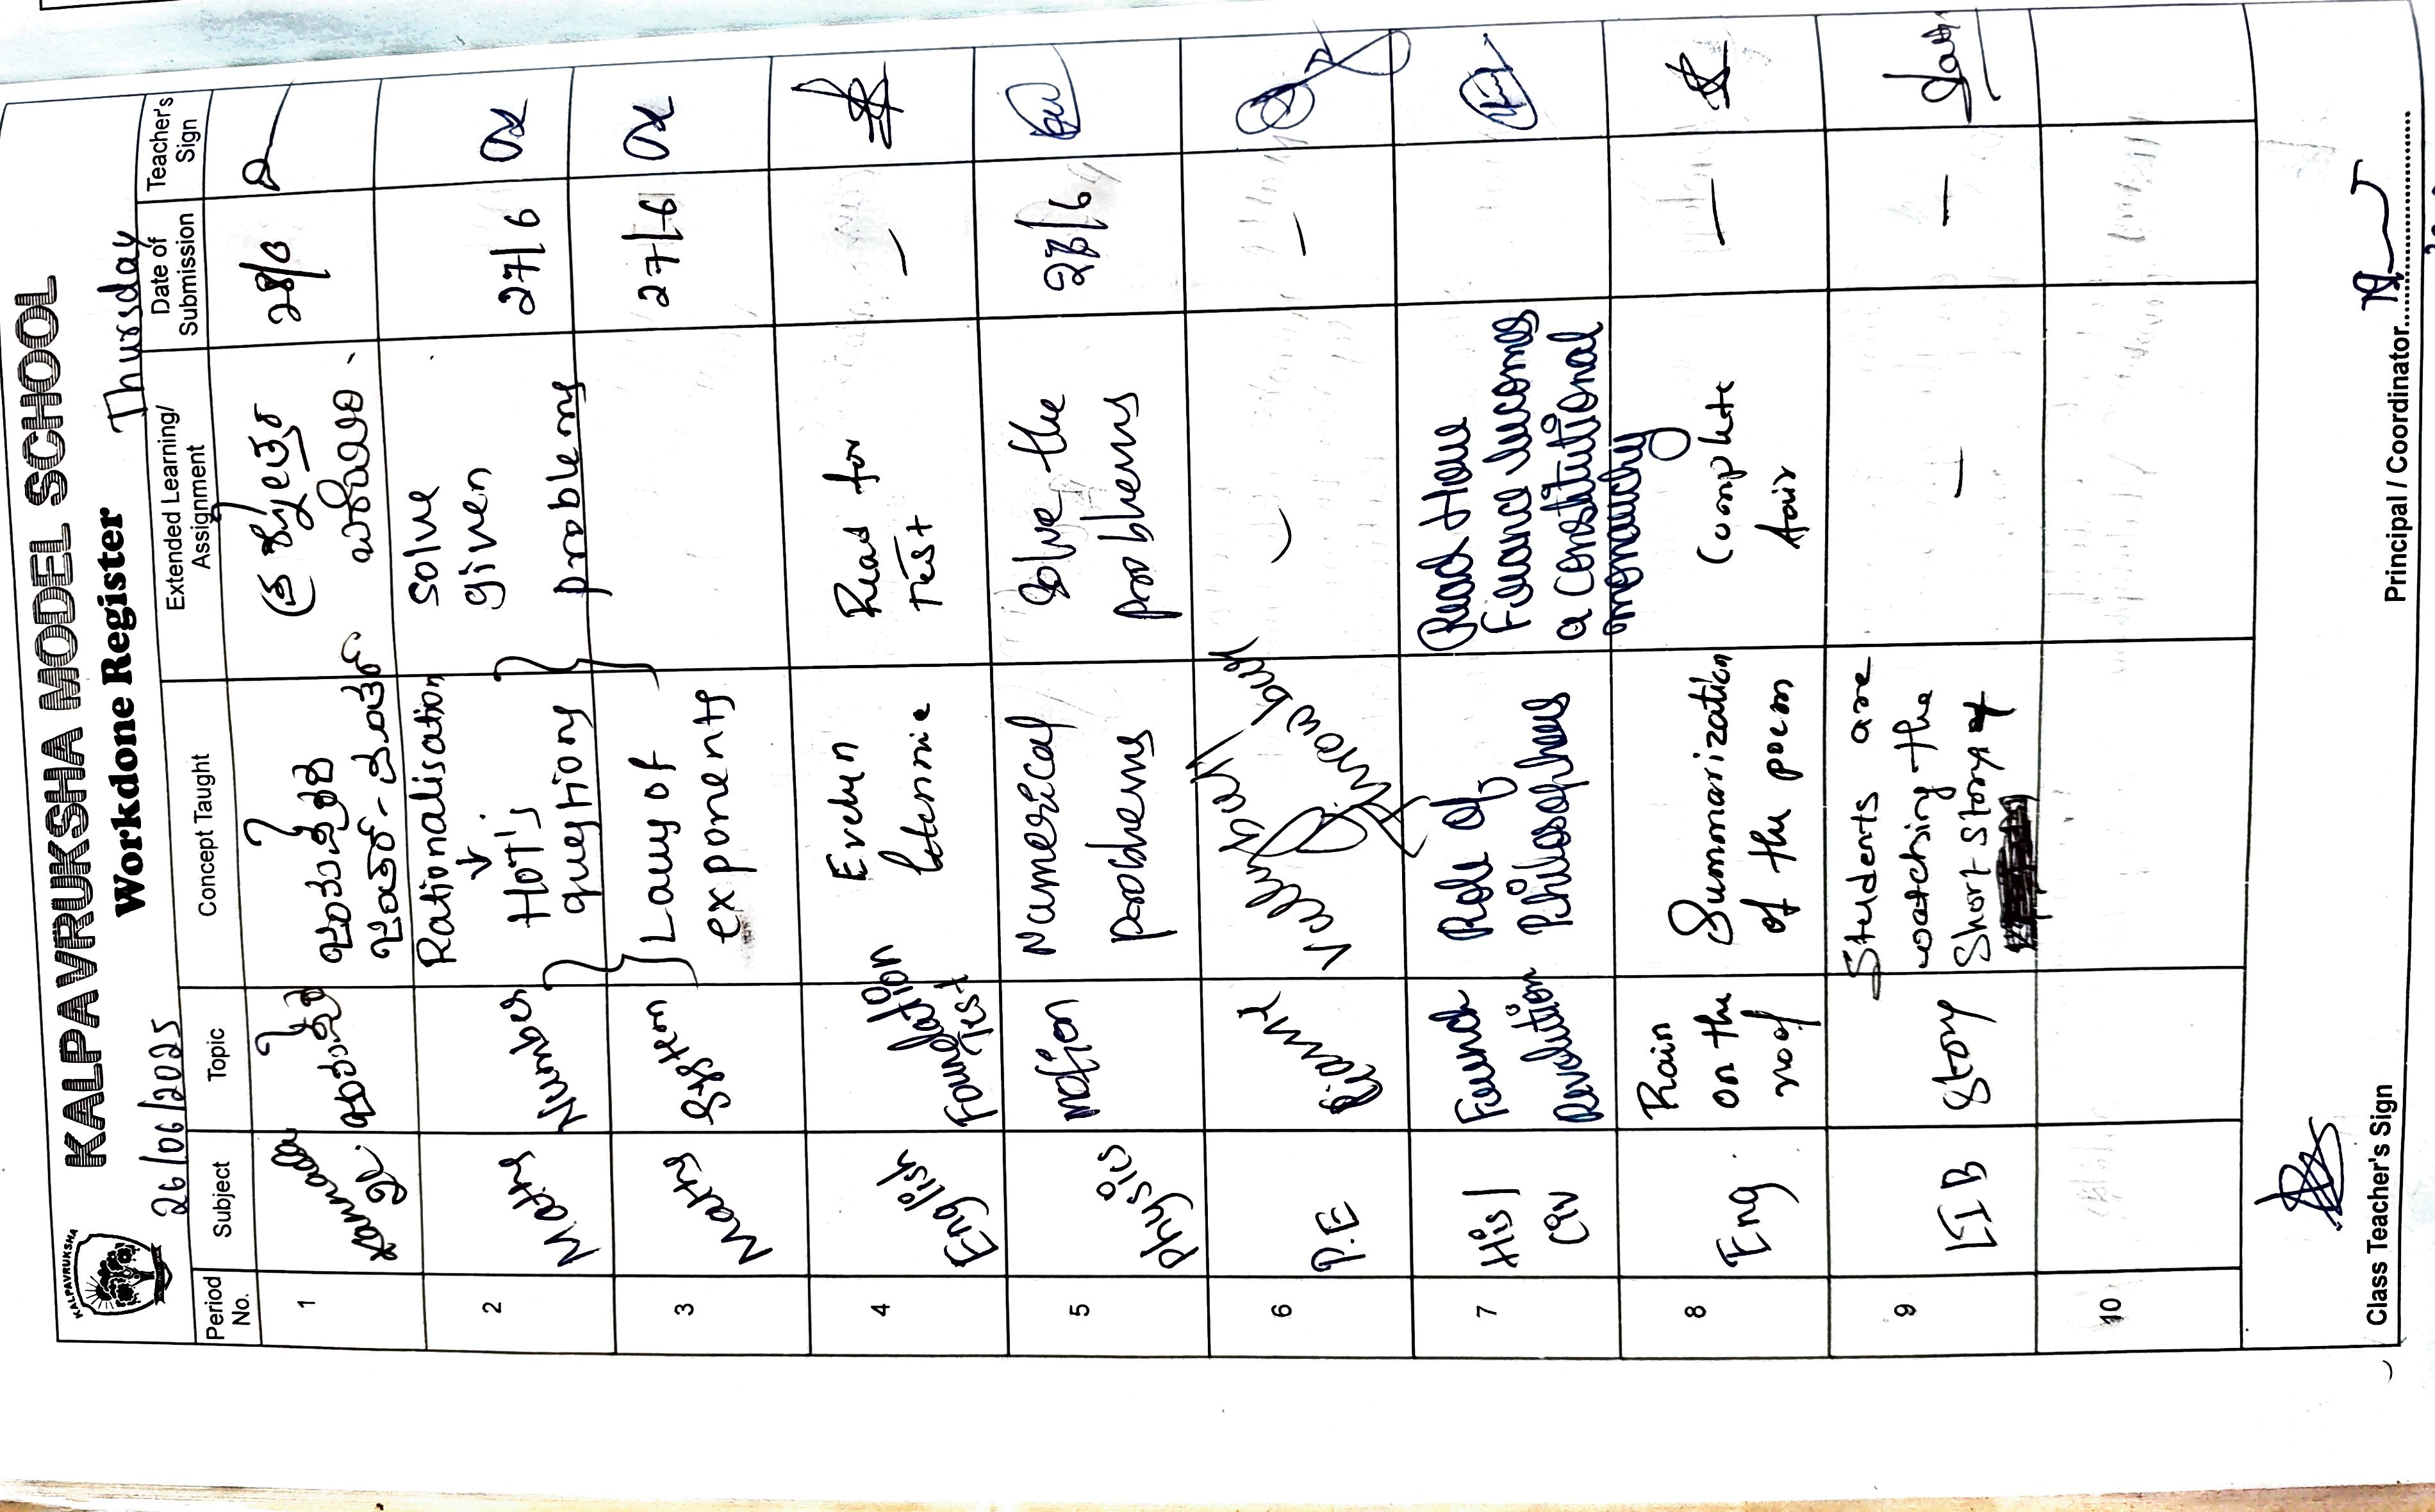 KALPAVRUKSHA
KALPAVRUKSHA MODEL SCHOOL
Workdone Register
26/06/2025
Thursday
Period No.
Subject
Topic
Concept Taught
Extended Learning/ Assignment
Date of Submission
Teacher's Sign
1
28/6
2
Maths
Number
Rationalisation
HOT's
questions
Solve
given
problems
27/6
3
Maths
System
Laws of
exponents
27/6
4
English
Foundation
Test
Evelyn
Glennie
Read for
Test
—
5
Physics
motion
Numerical
problems
Solve the
problems
28/6
6
P.E
Game
Volley ball
Throw ball
—
—
7
His/
Civ
French
Revolution
Role of
Philosophers
Read How
France becomes
a constitutional
monarchy
8
Eng.
Rain
on the
roof
Summarization
of the poem
Complete
fair
—
9
LIB
Story
Students are
watching the
Short Story
—
—
10
Class Teacher's Sign
Principal / Coordinator